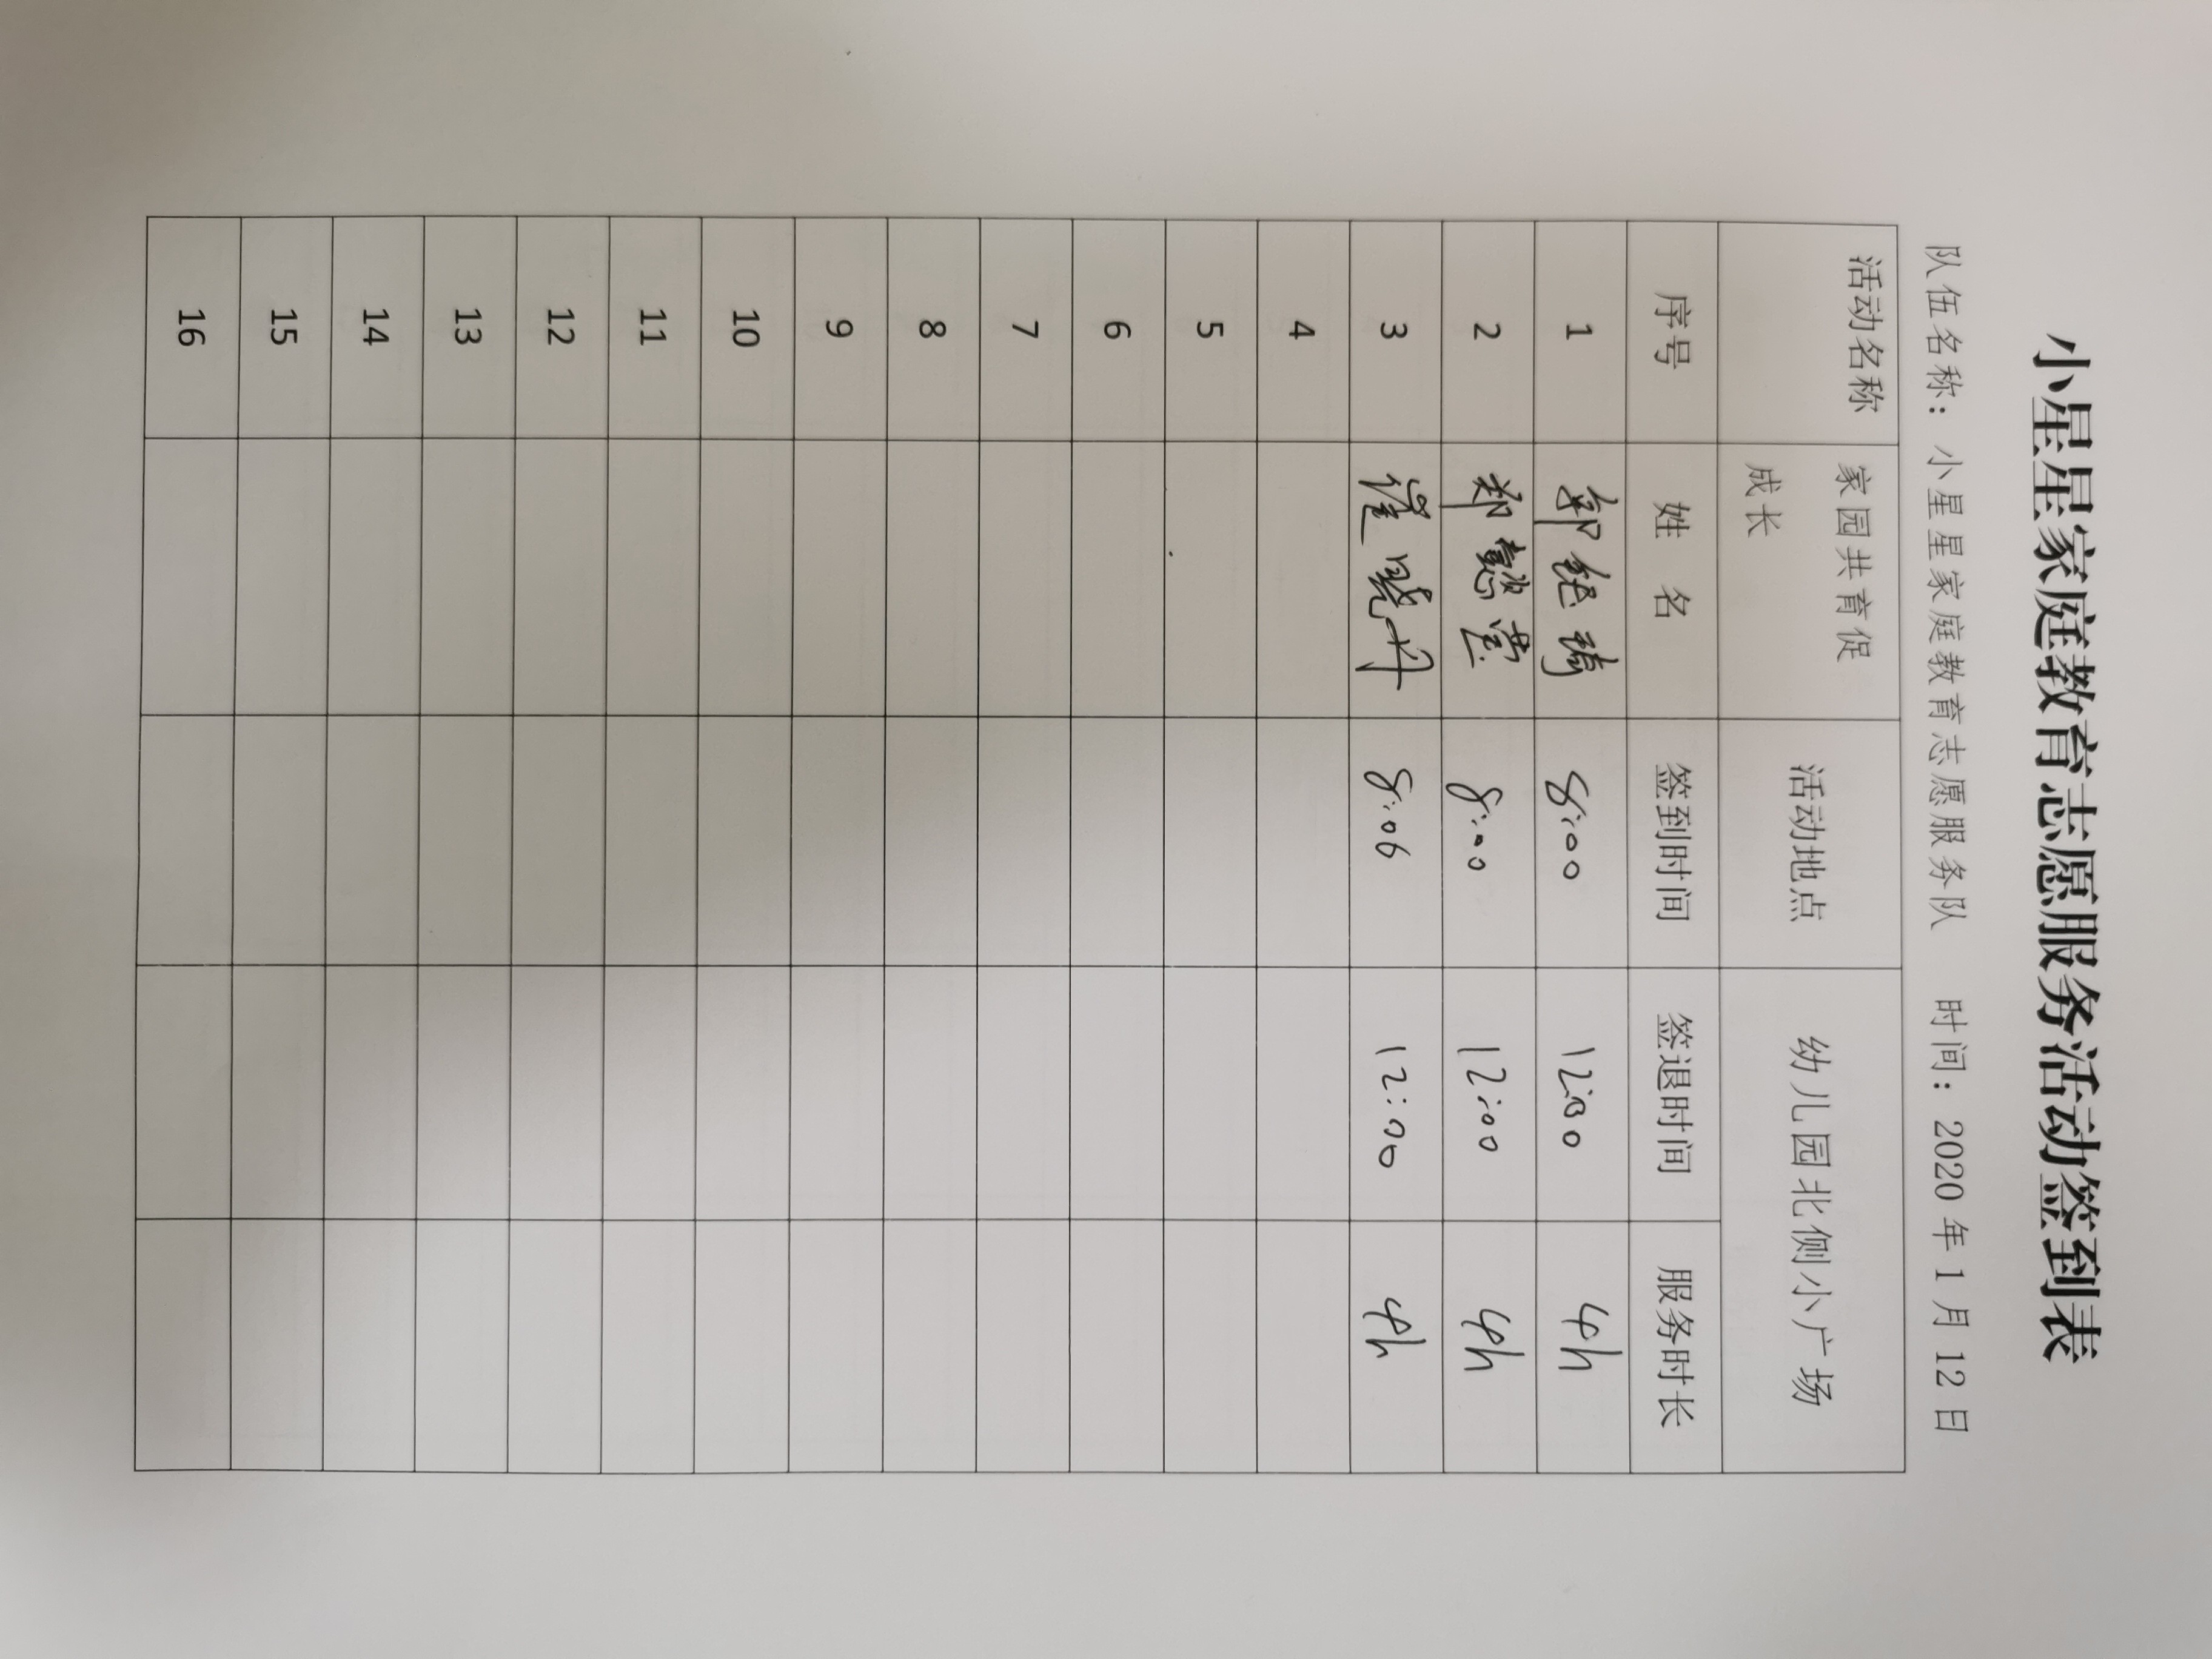 小星星家庭教育志愿服务活动签到表
队伍名称：小星星家庭教育志愿服务队 时间：2020 年 1 月 12 日
活动名称 家园共育促成长 活动地点 幼儿园北侧小广场
序号 姓 名 签到时间 签退时间 服务时长
1 郭 8:00 12:00 4h
2 郑懿莹 8:00 12:00 4h
3 崔晓丹 8:06 12:00 4h
4
5
6
7
8
9
10
11
12
13
14
15
16